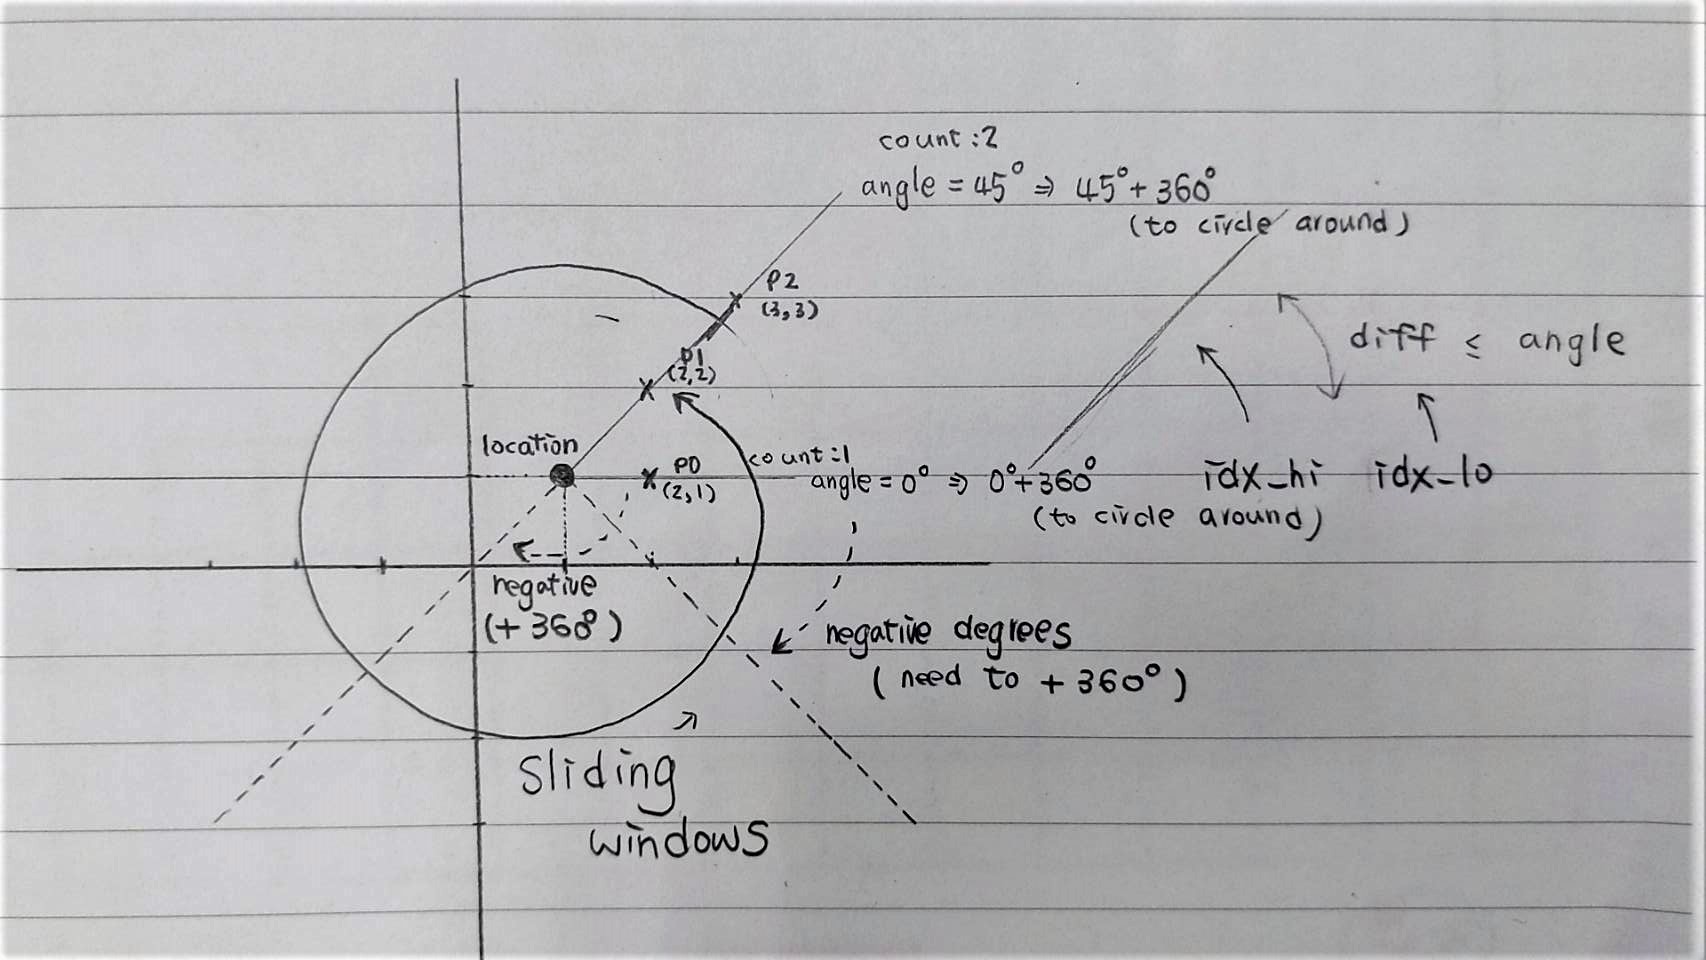 count:2
angle = 45° ⇒ 45°+360°
(to circle around)
P2
(3,3)
diff ≤ angle
P1
(2,2)
location
P0
(2,1)
count:1
angle = 0° ⇒ 0°+360°
(to circle around)
idx_hi idx_lo
negative
(+360°)
negative degrees
(need to +360°)
Sliding
windows